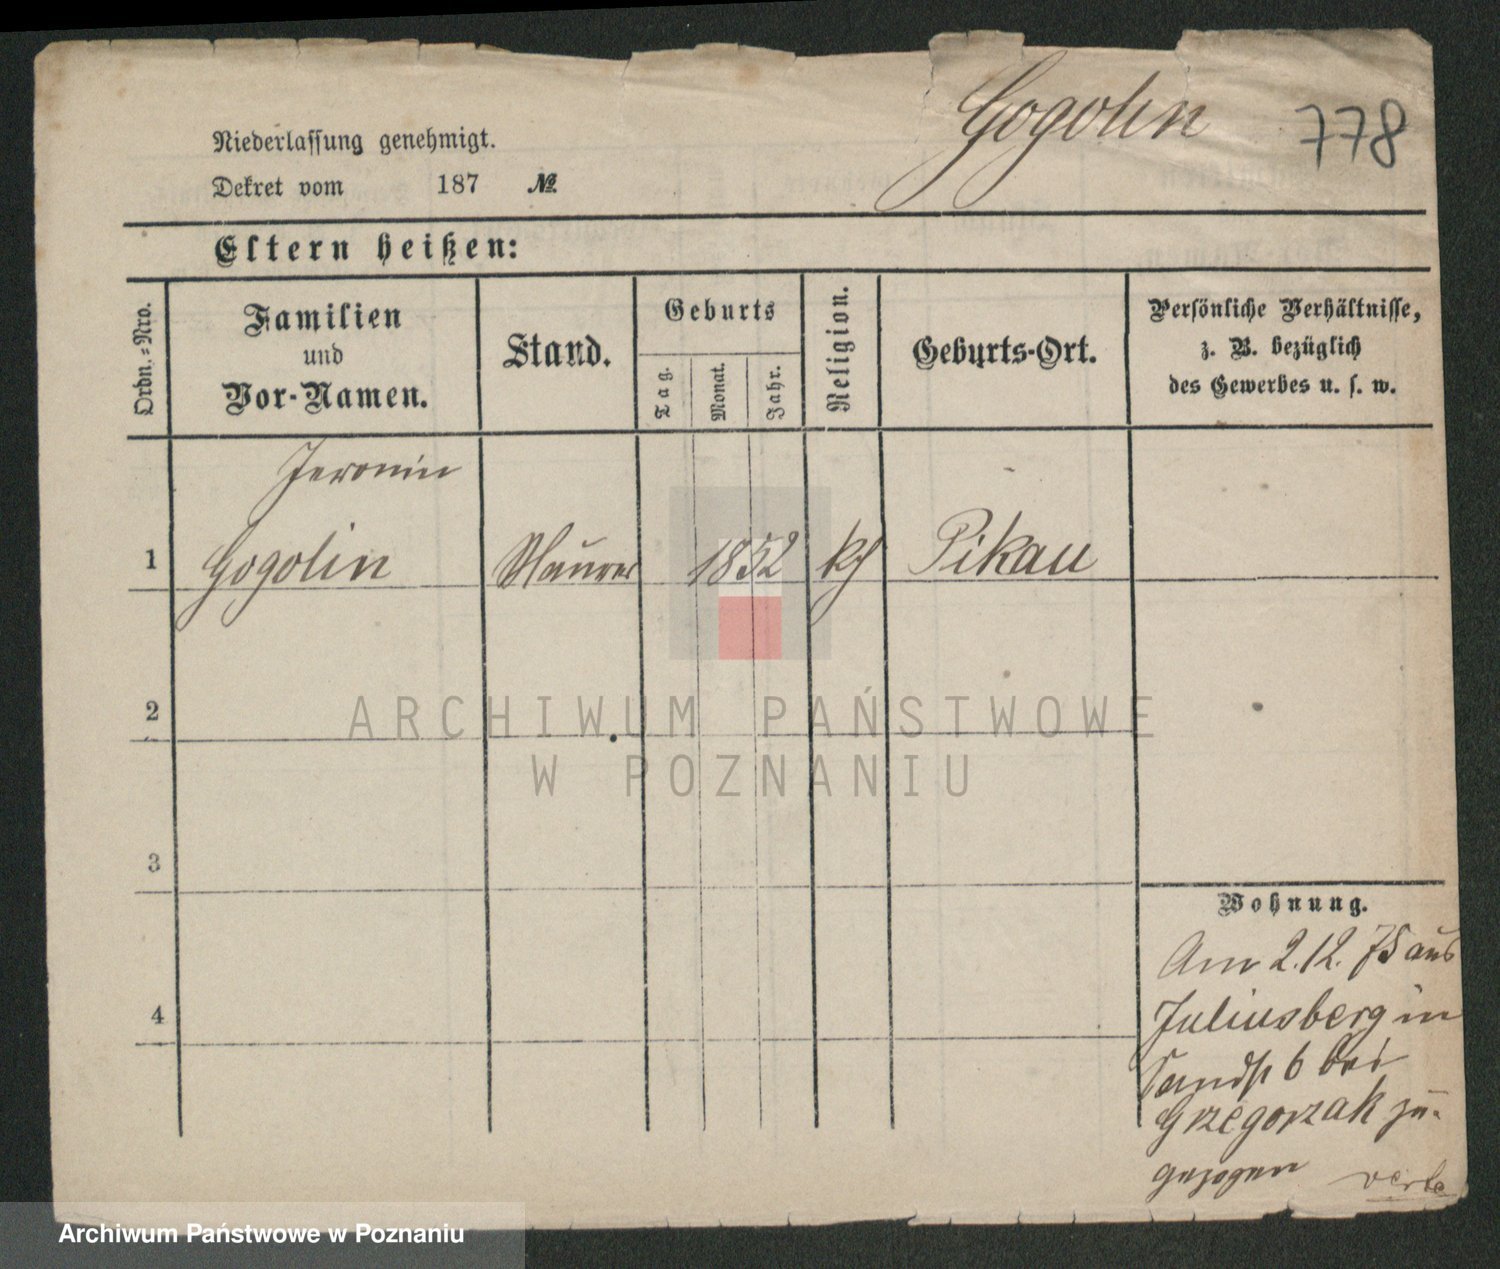 Gogolin 778
Niederlassung genehmigt.
Dekret vom 187 №
Eltern heißen:
Ordn.-Nro.
Familien
und
Vor-Namen.
Stand.
Geburts
Tag.
Monat.
Jahr.
Religion.
Geburts-Ort.
Persönliche Verhältnisse,
z. B. bezüglich
des Gewerbes u. s. w.
Jeronin
1 Gogolin Maurer 1852 kt Pikau
2
3
4
Wohnung.
Am 2.12. 75 aus
Juliusberg in
Sandstr 6 bei
Grzegorzak zu-
gezogen
ARCHIWUM PAŃSTWOWE
W POZNANIU
Archiwum Państwowe w Poznaniu